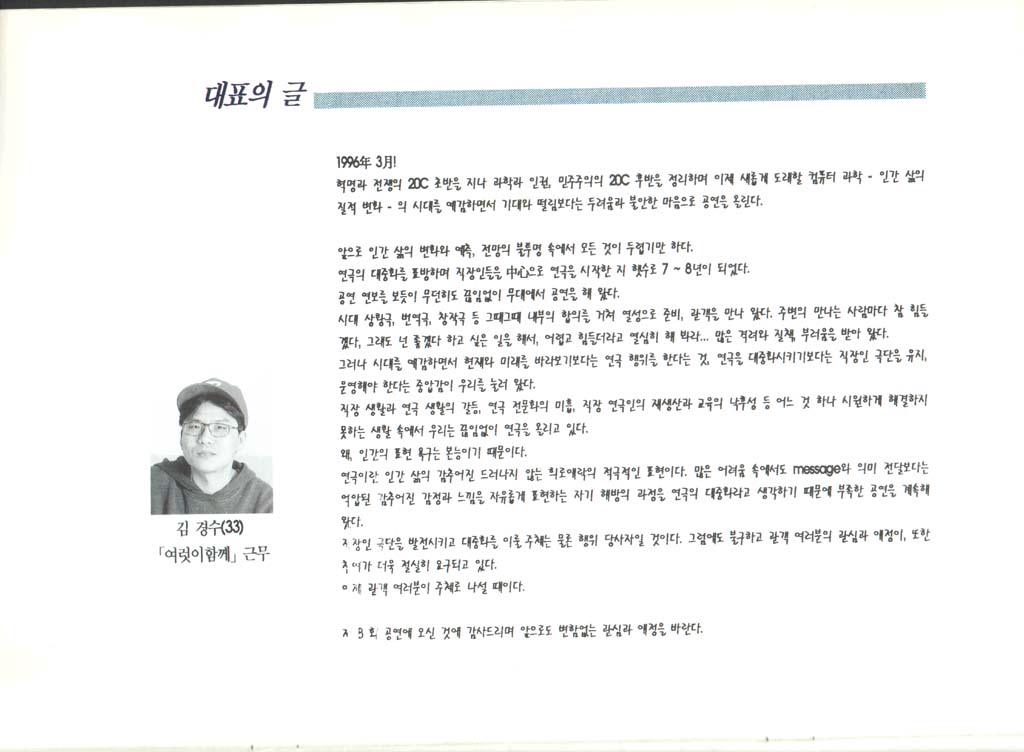 대표의 글
1996年 3月!
혁명과 전쟁의 20C 초반을 지나 과학과 인권, 민주주의의 20C 후반을 정리하며 이제 새롭게 도래할 컴퓨터 과학 - 인간 삶의
질적 변화 - 의 시대를 예감하면서 기대와 떨림보다는 두려움과 불안한 마음으로 공연을 올린다.
앞으로 인간 삶의 변화와 예측, 전망의 불투명 속에서 모든 것이 두렵기만 하다.
연극의 대중화를 표방하며 직장인들을 中心으로 연극을 시작한 지 햇수로 7 ~ 8년이 되었다.
공연 연보를 보듯이 무던히도 끊임없이 무대에서 공연을 해 왔다.
시대 상황극, 번역극, 창작극 등 그때그때 내부의 합의를 거쳐 열성으로 준비, 관객을 만나 왔다. 주변의 만나는 사람마다 참 힘들
겠다, 그래도 넌 좋겠다 하고 싶은 일을 해서, 어렵고 힘들더라고 열심히 해 봐라... 많은 격려와 질책, 부러움을 받아 왔다.
그러나 시대를 예감하면서 현재와 미래를 바라보기보다는 연극 행위를 한다는 것, 연극을 대중화시키기보다는 직장인 극단을 유지,
운영해야 한다는 중압감이 우리를 눌러 왔다.
직장 생활과 연극 생활의 갈등, 연극 전문화의 미흡, 직장 연극인의 재생산과 교육의 낙후성 등 어느 것 하나 시원하게 해결하지
못하는 생활 속에서 우리는 끊임없이 연극을 올리고 있다.
왜, 인간의 표현 욕구는 본능이기 때문이다.
연극이란 인간 삶의 감추어진 드러나지 않는 희로애락의 적극적인 표현이다. 많은 어려움 속에서도 message와 의미 전달보다는
억압된 감추어진 감정과 느낌을 자유롭게 표현하는 자기 해방의 과정을 연극의 대중화라고 생각하기 때문에 부족한 공연을 계속해
왔다.
직장인 극단을 발전시키고 대중화를 이룰 주체는 물론 행위 당사자일 것이다. 그럼에도 불구하고 관객 여러분의 관심과 애정이, 또한
참여가 더욱 절실히 요구되고 있다.
이제 관객 여러분이 주체로 나설 때이다.
제 8 회 공연에 오신 것에 감사드리며 앞으로도 변함없는 관심과 애정을 바란다.
김 경수(33)
「여럿이함께」 근무